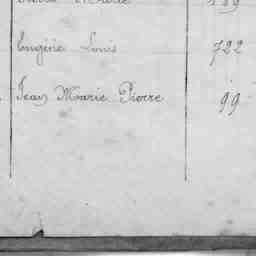 Eugénie Louis 722
Jean Marie Pierre 99